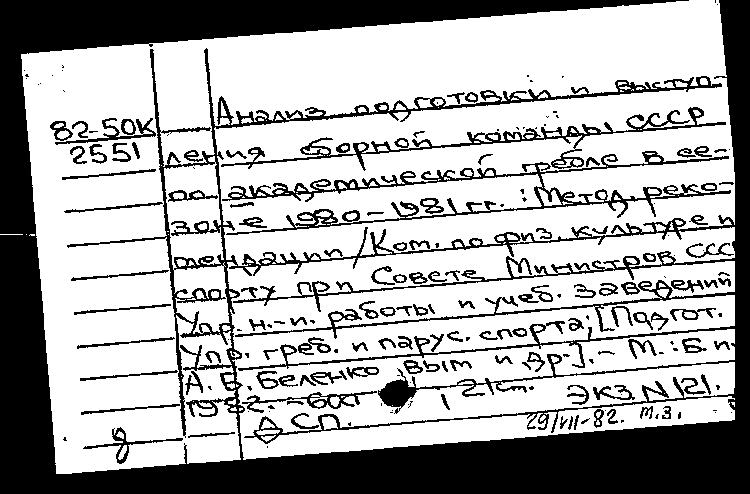 Анализ подготовки и выступ-
82-50К
2551
ления сборной команды СССР
по академической гребле в се-
зоне 1980-1981 гг. : Метод. реко-
мендации / Ком. по физ. культуре и
спорту при Совете Министров СССР
Упр. н.-и. работы и учеб. заведений
Упр. греб. и парус. спорта; [Подгот.
А. Б. Беленко вым и др.]. - М. : Б. и.
1982. - 60 ст 21 см. ЭКЗ. N 121.
СП.
29/VII-82. м.з.